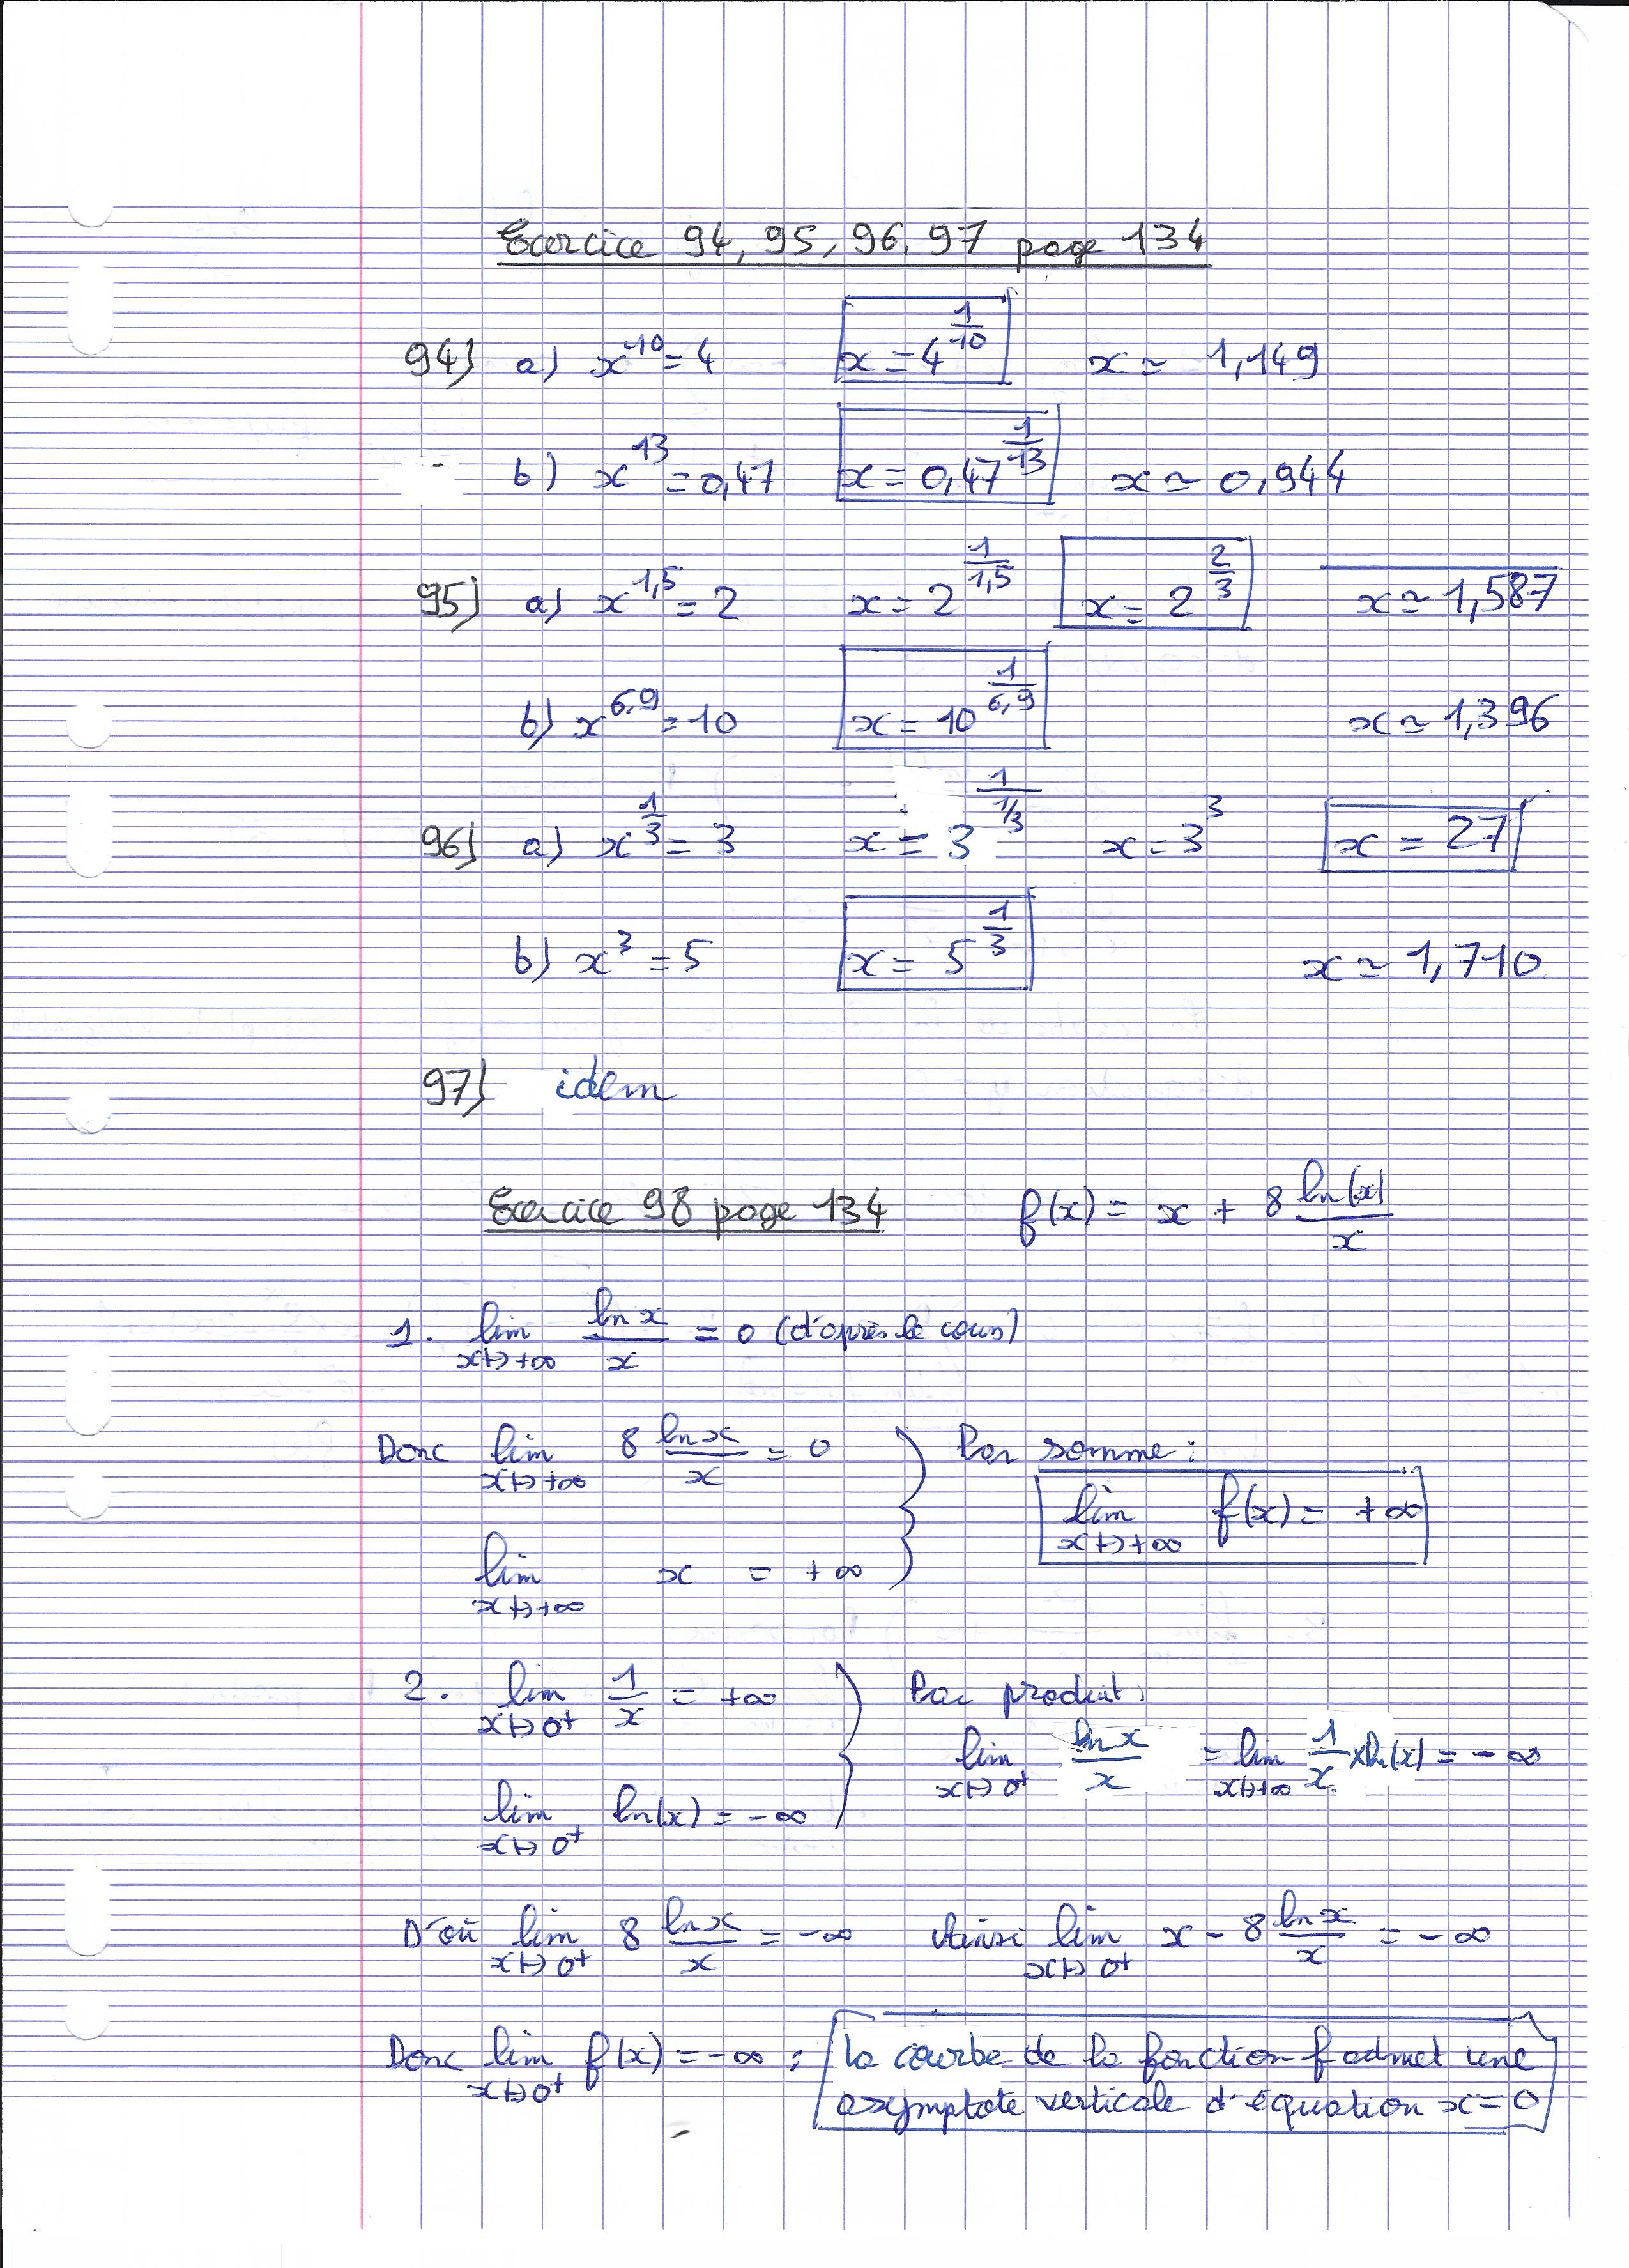 Exercice 94, 95, 96, 97 page 134
94) a) x^10 = 4 x = 4^(1/10) x ≃ 1,149
b) x^13 = 0,47 x = 0,47^(1/13) x ≃ 0,944
95) a) x^1,5 = 2 x = 2^(1/1,5) x = 2^(2/3) x ≃ 1,587
b) x^6,9 = 10 x = 10^(1/6,9) x ≃ 1,396
96) a) x^(1/3) = 3 x = 3^(1/(1/3)) x = 3^3 x = 27
b) x^3 = 5 x = 5^(1/3) x ≃ 1,710
97) idem
Exercice 98 page 134 f(x) = x + 8 ln(x)/x
1. lim x↦+∞ ln x/x = 0 (d'après le cours)
Donc lim x↦+∞ 8 ln x/x = 0 Par somme :
lim x↦+∞ f(x) = +∞
lim x↦+∞ x = +∞
2. lim x↦0+ 1/x = +∞ Par produit,
lim x↦0+ ln x/x = lim x↦+∞ 1/x × ln(x) = -∞
lim x↦0+ ln(x) = -∞
D'où lim x↦0+ 8 ln x/x = -∞ Ainsi lim x↦0+ x - 8 ln x/x = -∞
Donc lim x↦0+ f(x) = -∞ : la courbe de la fonction f admet une
asymptote verticale d'équation x = 0